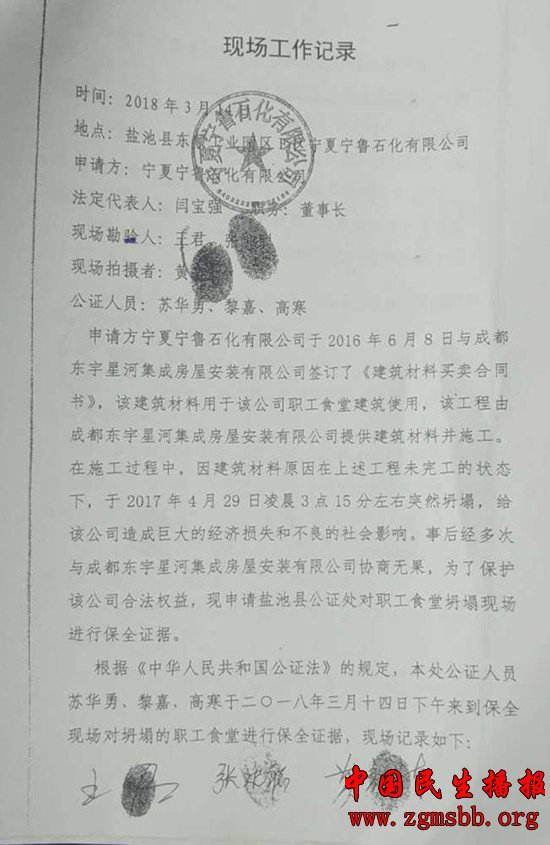 现场工作记录
时间：2018年3月14日
地点：盐池县东 工业园区 区宁夏宁鲁石化有限公司
宁夏宁鲁石化有限公司
申请方：宁夏宁鲁石化有限公司
法定代表人：闫宝强 职务：董事长
现场勘验人：王君、张
现场拍摄者：黄
公证人员：苏华勇、黎嘉、高寒
申请方宁夏宁鲁石化有限公司于2016年6月8日与成都
东宇星河集成房屋安装有限公司签订了《建筑材料买卖合同
书》，该建筑材料用于该公司职工食堂建筑使用，该工程由
成都东宇星河集成房屋安装有限公司提供建筑材料并施工。
在施工过程中，因建筑材料原因在上述工程未完工的状态
下，于2017年4月29日凌晨3点15分左右突然坍塌，给
该公司造成巨大的经济损失和不良的社会影响。事后经多次
与成都东宇星河集成房屋安装有限公司协商无果，为了保护
该公司合法权益，现申请盐池县公证处对职工食堂坍塌现场
进行保全证据。
根据《中华人民共和国公证法》的规定，本处公证人员
苏华勇、黎嘉、高寒于二〇一八年三月十四日下午来到保全
现场对坍塌的职工食堂进行保全证据，现场记录如下：
王君 张 黄
中国民生播报
www.zgmsbb.org